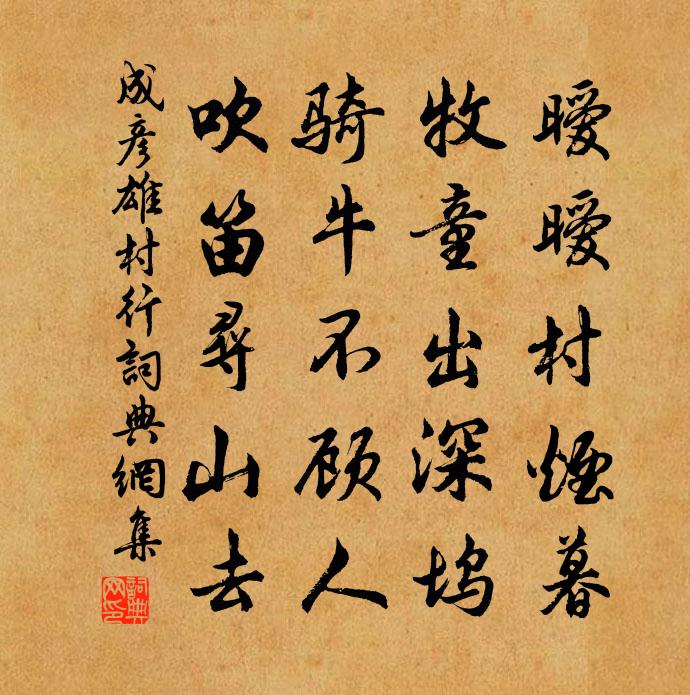 曖曖村煙暮
牧童出深坞
骑牛不顾人
吹笛尋山去
成彦雄村行詞典網集
詞典
网印